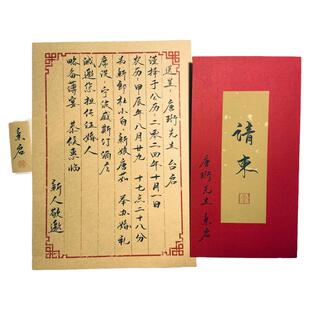 送呈 唐珩先生 台启
谨择于公历二零二四年十月一日
农历甲辰年八月廿九 十七点二十八分
为新郎杜小白 新娘唐茹 举办婚礼
席设宁波威斯汀酒店
诚邀您担任证婚人
略备薄宴 恭候惠临
新人敬邀
柬启
请柬
唐珩先生 柬启